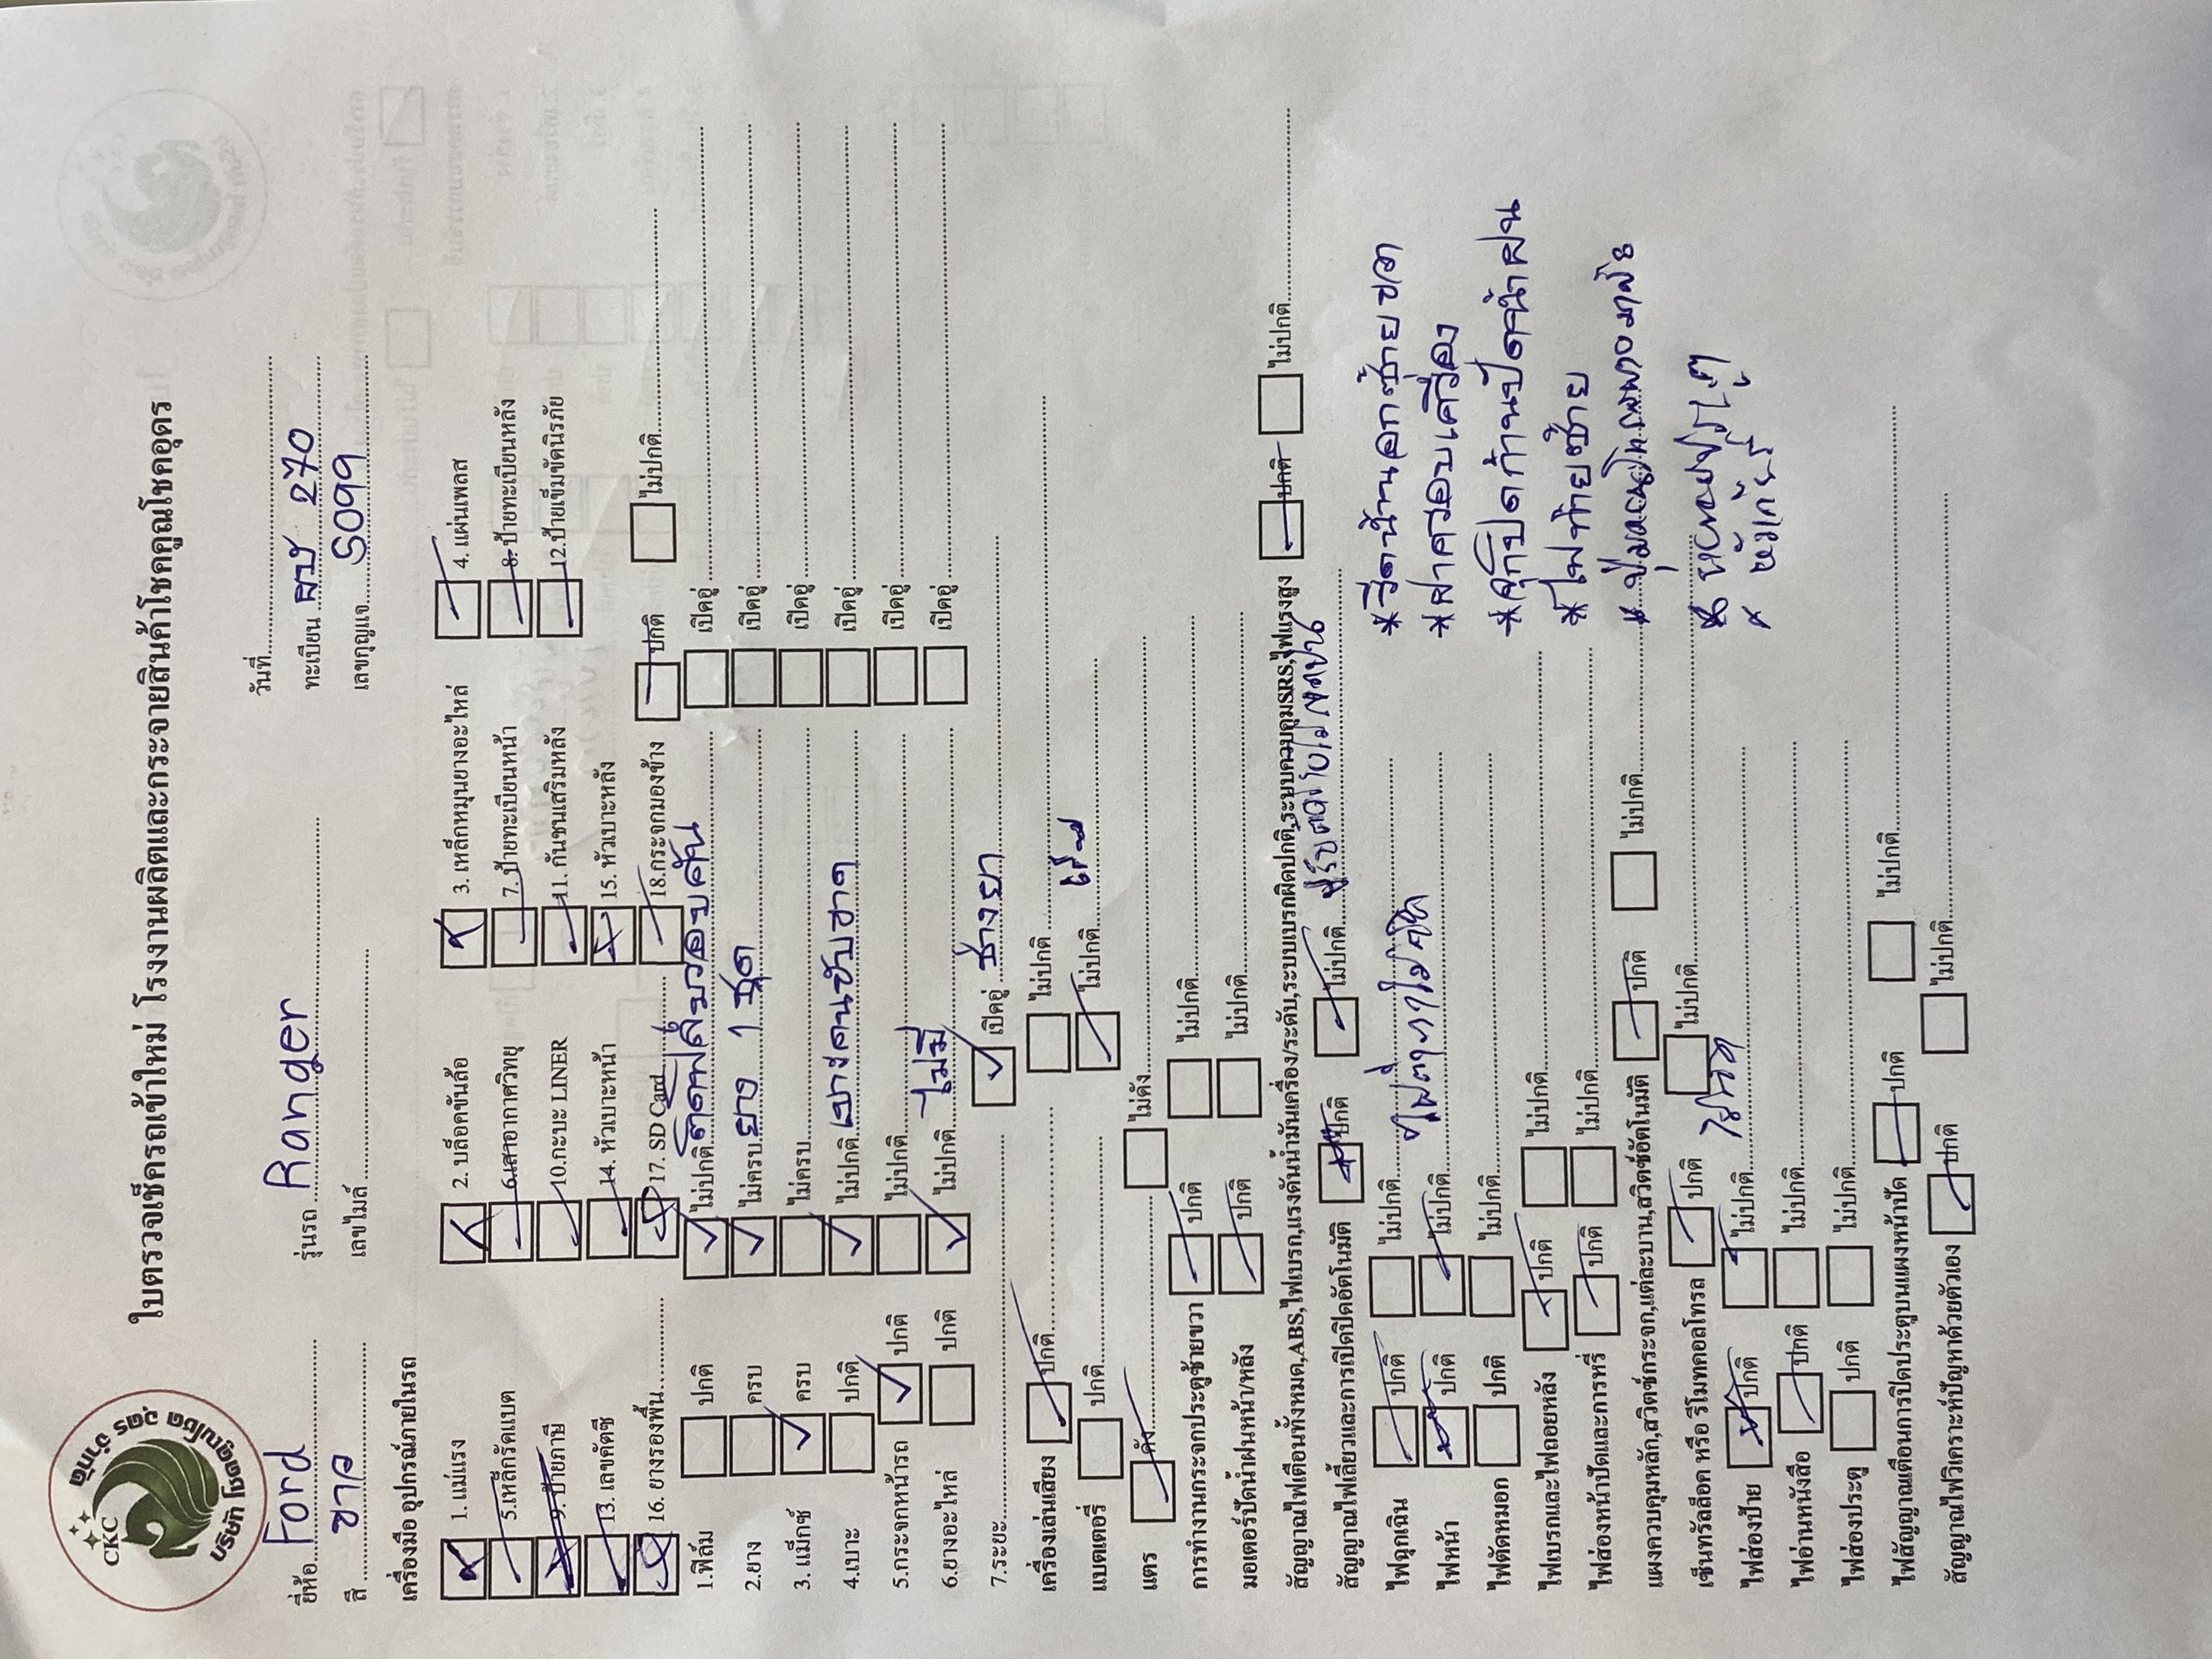 บริษัท โชคคูณโชค อุดร จำกัด
CKC
ใบตรวจเช็ครถเข้าใหม่ โรงงานผลิตและกระจายสินค้าโชคคูณโชคอุดร
วันที่
ยี่ห้อ Ford รุ่นรถ Ranger ทะเบียน 270
สี ขาว เลขไมล์ เลขกุญแจ S099
เครื่องมือ อุปกรณ์ภายในรถ
1. แม่แรง 2. บล็อคขันล้อ 3. เหล็กหมุนยางอะไหล่ 4. แผ่นเพลส
5.เหล็กรัคแบต 6.เสาอากาศวิทยุ 7. ป้ายทะเบียนหน้า 8. ป้ายทะเบียนหลัง
9. ป้ายภาษี 10.กะบะ LINER 11. กันชนเสริมหลัง 12.ป้ายเข็มขัดนิรภัย
13. เลขคัตซี 14. หัวเบาะหน้า 15. หัวเบาะหลัง
16. ยางรองพื้น 17. SD Card 18.กระจกมองข้าง ปกติ ไม่ปกติ
1.ฟิล์ม ปกติ ไม่ปกติ ติดฟิล์มรอบคัน เปิดอู่
2.ยาง ครบ ไม่ครบ ยาง 1 ชุด เปิดอู่
3. แม็กซ์ ครบ ไม่ครบ เปิดอู่
4.เบาะ ปกติ ไม่ปกติ เบาะคนขับขาด เปิดอู่
5.กระจกหน้ารถ ปกติ ไม่ปกติ เปิดอู่
6.ยางอะไหล่ ปกติ ไม่ปกติ ไม่มี เปิดอู่
7.ระยะ เปิดอู่ ช้างยา
เครื่องเล่นเสียง ปกติ ไม่ปกติ
แบตเตอรี่ ปกติ ไม่ปกติ
แตร ดัง ไม่ดัง
การทำงานกระจกประตูซ้ายขวา ปกติ ไม่ปกติ
มอเตอร์ปัดน้ำฝนหน้า/หลัง ปกติ ไม่ปกติ
สัญญาณไฟเตือนทั้งหมด,ABS,ไฟเบรก,แรงดันน้ำมันเครื่อง/ระดับ,ระบบเบรกผิดปกติ,ระบบควบคุมSRS,ไฟแรงสูง ปกติ ไม่ปกติ
สัญญาณไฟเลี้ยวและการเปิดปิดอัตโนมัติ ปกติ ไม่ปกติ
ไฟฉุกเฉิน ปกติ ไม่ปกติ
*รีดน้ำนอกซ้ายขวา
ไฟหน้า ปกติ ไม่ปกติ
*ฝาครอบเครื่อง
ไฟตัดหมอก ปกติ ไม่ปกติ
*จุกปิดก้านปัดน้ำฝน
ไฟเบรกและไฟถอยหลัง ปกติ ไม่ปกติ
*ไฟท้ายซ้าย
ไฟส่องหน้าปัดและการหรี่ ปกติ ไม่ปกติ
แผงควบคุมหลัก,สวิตช์กระจก,แต่ละบาน,สวิตซ์อัตโนมัติ ปกติ ไม่ปกติ
เซ็นทรัลล็อค หรือ รีโมทคอลโทรล ปกติ ไม่ปกติ
ไฟส่องป้าย ปกติ ไม่ปกติ
ไฟอ่านหนังสือ ปกติ ไม่ปกติ
ไฟส่องประตู ปกติ ไม่ปกติ
ไฟสัญญาณเตือนการปิดประตูบนแผงหน้าปัด ปกติ ไม่ปกติ
สัญญาณไฟวิเคราะห์ปัญหาด้วยตัวเอง ปกติ ไม่ปกติ